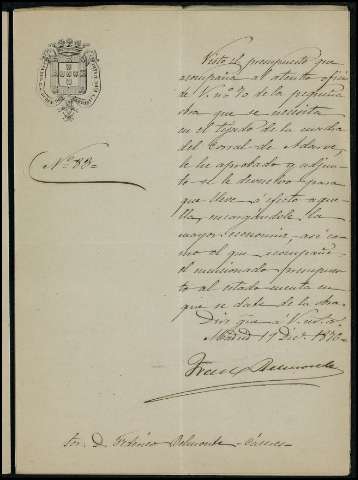 Nº 83=
Visto el presupuesto que
acompaña al atento oficio
de V. nº 70 de la pequeña
obra que se necesita
en el tejado de la cuadra
del Corral de Adarve,
le he aprobado y adjun-
to se le devuelvo para
que lleve á efecto aque-
lla, encargándole la
mayor economia, asi co-
mo el que acompañe
el mencionado presupues-
to al estado cuenta en
que se date de la obra.
Dios gue á V. m. a.
Madrid 11 Dicr. 1876=
Franco Belmonte
Sor. D. Federico Belmonte - Cáceres